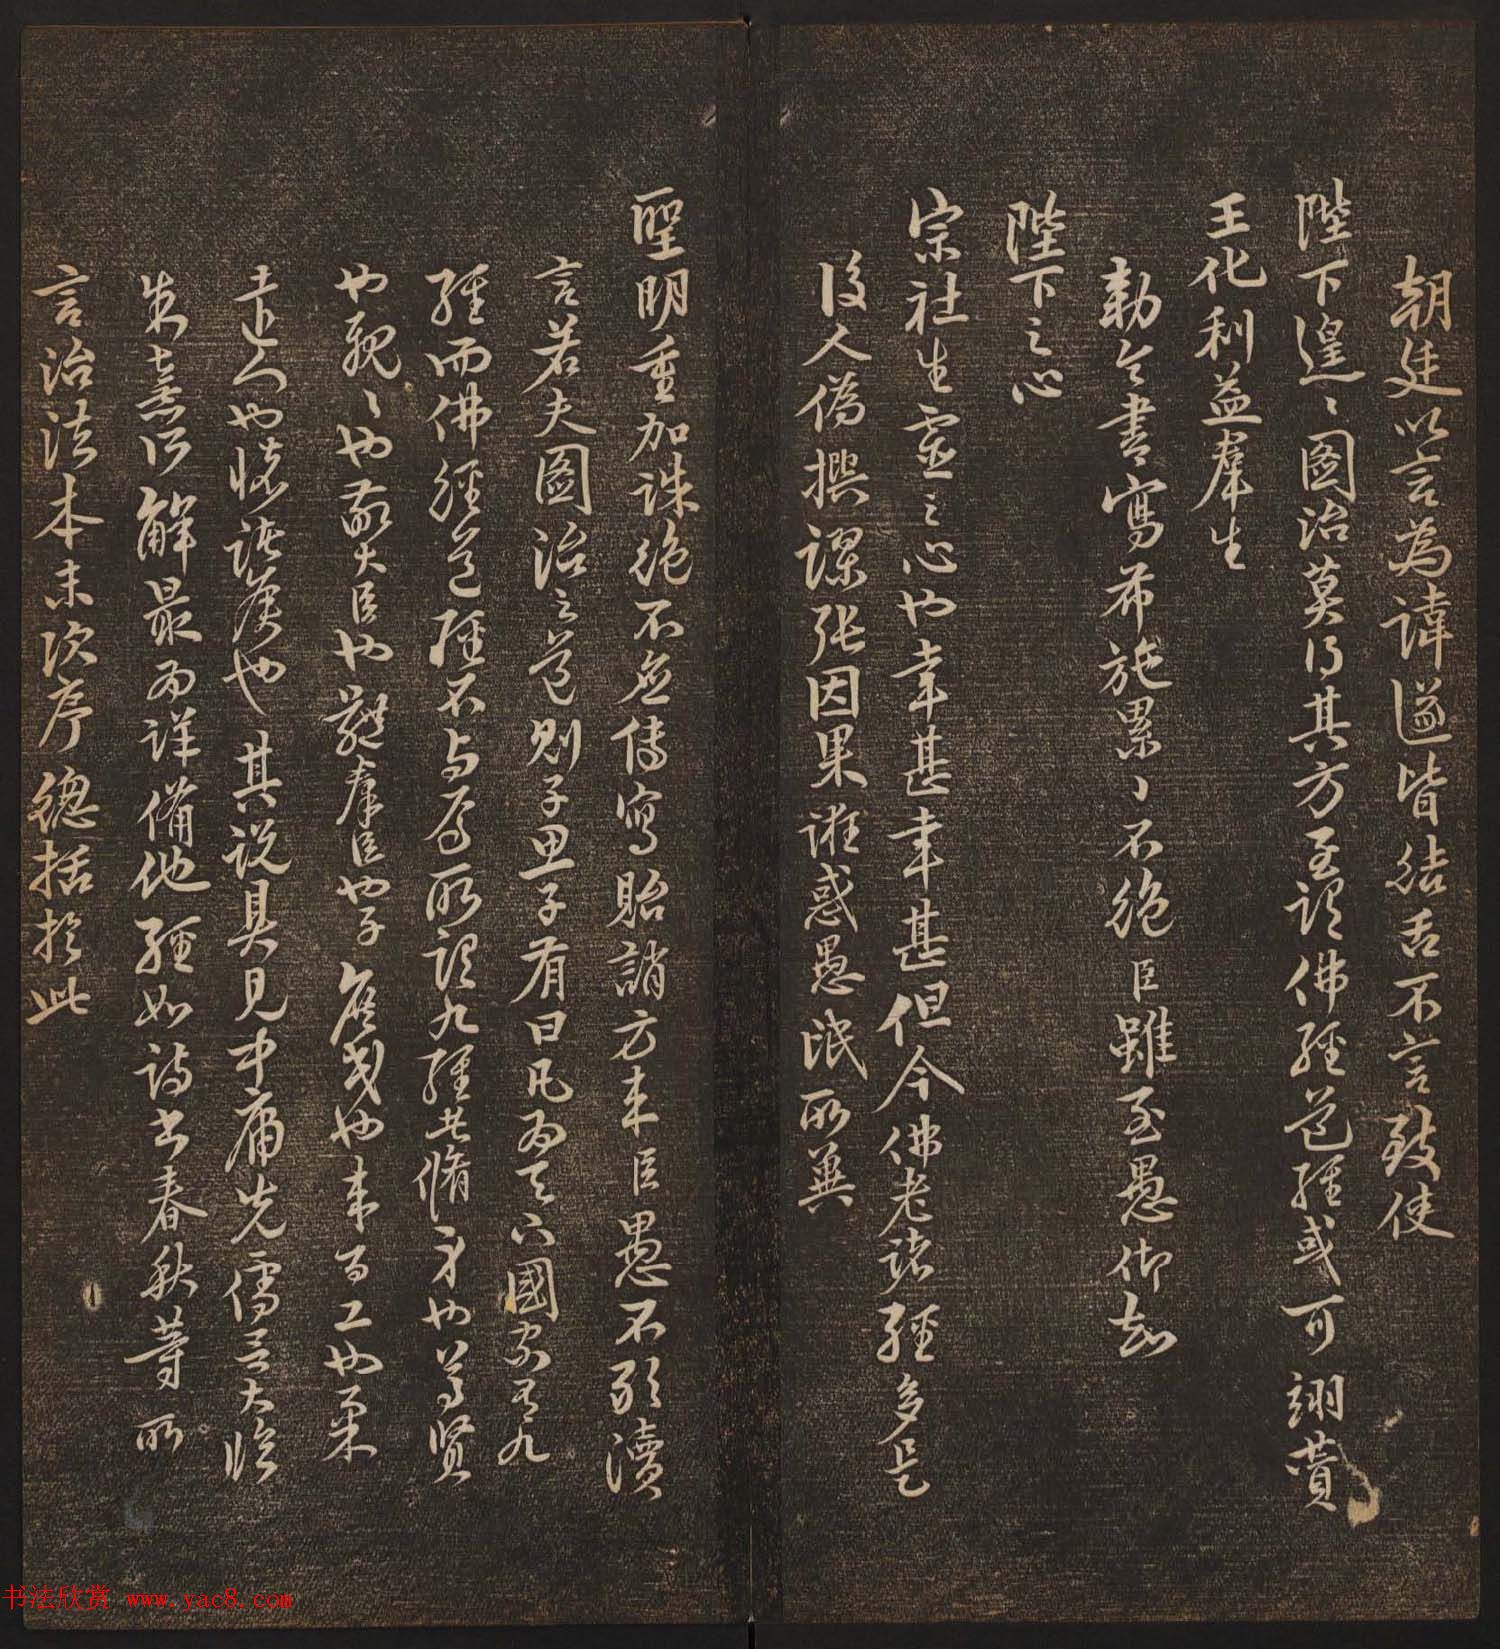 朝廷以言為諱遂皆結舌不言致使
陛下遑々圖治莫得其方至謂佛經道經或可翊贊
王化利益羣生
勅令書寫布施累々不絶臣雖至愚仰知
陛下之心
宗社生靈之心也幸甚幸甚但今佛老諸經多是
後人偽撰謬張因果誑惑愚氓所冀
聖明重加誅絶不應傳寫貽誚方來臣愚不敢瀆
言若夫圖治之道則子思子有曰凡為天下國家有九
經而佛經道經不与焉所謂九經者脩身也尊賢
也親々也敬大臣也體羣臣也子庶民也來百工也柔
遠人也懷諸侯也其說具見中庸先儒
朱熹所解最為詳備他經如詩書春秋等所
言治法本末次序總括於此
书法欣赏 www.yac8.com